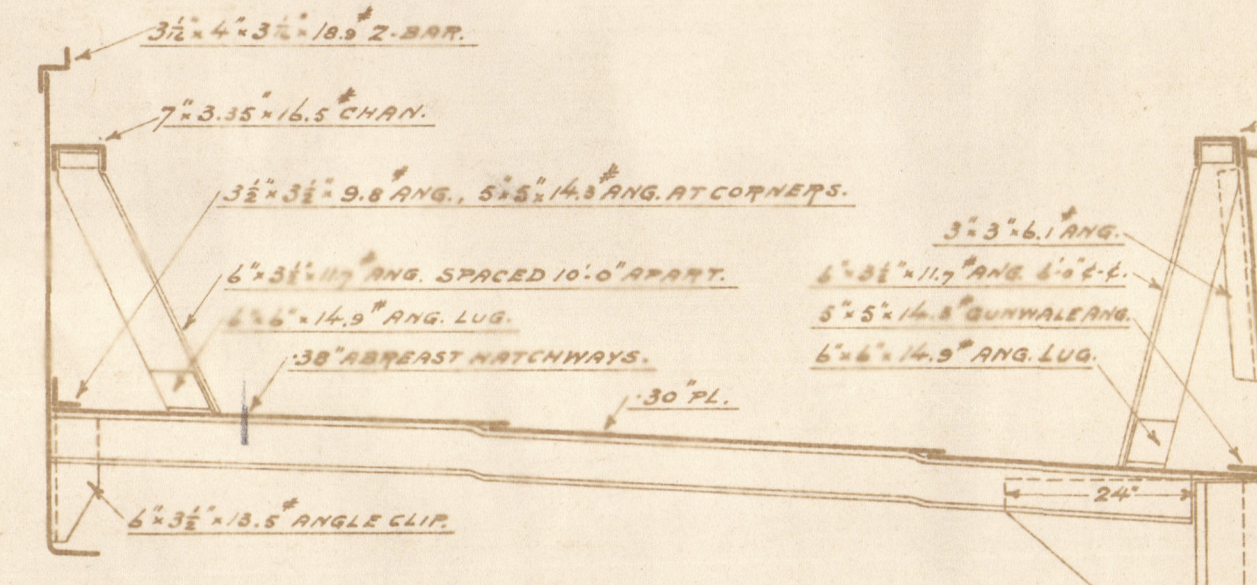 3½"×4"×3½"×18.9# Z-BAR.
7"×3.35"×16.5# CHAN.
3½"×3½"×9.8# ANG., 5"×5"×14.3# ANG. AT CORNERS.
6"×3½"×11.7# ANG. SPACED 10'-0" APART.
6"×6"×14.9# ANG. LUG.
·38" ABREAST HATCHWAYS.
·30" PL.
6"×3½"×13.5# ANGLE CLIP.
3"×3"×6.1# ANG.
6"×3½"×11.7# ANG. 6'-0" ¢-¢.
5"×5"×14.3# GUNWALE ANG.
6"×6"×14.9# ANG. LUG.
24"